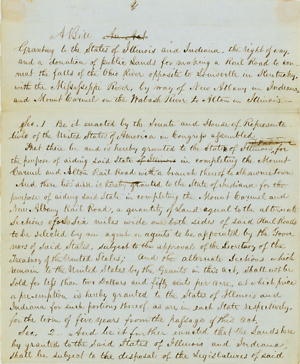 A Bill
Granting to the States of Illinois and Indiana, the right of way,
and a donation of public Lands for making a Rail Road to con-
nect the falls of the Ohio River opposite to Louisville in Kentucky
with the Mississippi River, by way of New Albany in Indiana
and Mount Carmel on the Wabash River to Alton in Illinois.
Sec. 1. Be it enacted by the Senate and House of Represent-
atives of the United States of America in Congress assembled,
That there be and is hereby granted to the State of Illinois for
the purpose of aiding said State of Illinois in completing the Mount
Carmel and Alton Rail Road with a branch thereof to Shawneetown
And there be and is hereby granted to the State of Indiana for the
purpose of aiding said State in completing the Mount Carmel and
New Albany Rail Road, a quantity of land equal to the alternate
Sections for six miles wide on both sides of said Rail Roads
to be selected by an agent or agents to be appointed by the Gover-
nors of said States, subject to the approval of the Secretary of the
Treasury of the United States; and the alternate Sections which
remain to the United States by the Grants in this act, shall not be
Sold for less than two Dollars and fifty cents per acre, at which price
a pre-emption is hereby granted to the States of Illinois and
Indiana for such portions thereof as are in said State respectively,
for the term of five years from the passage of this act.
Sec. 2. And be it further enacted that the Lands here
by granted to the Said States of Illinois and Indiana,
shall be subject to the disposal of the Legislatures of said